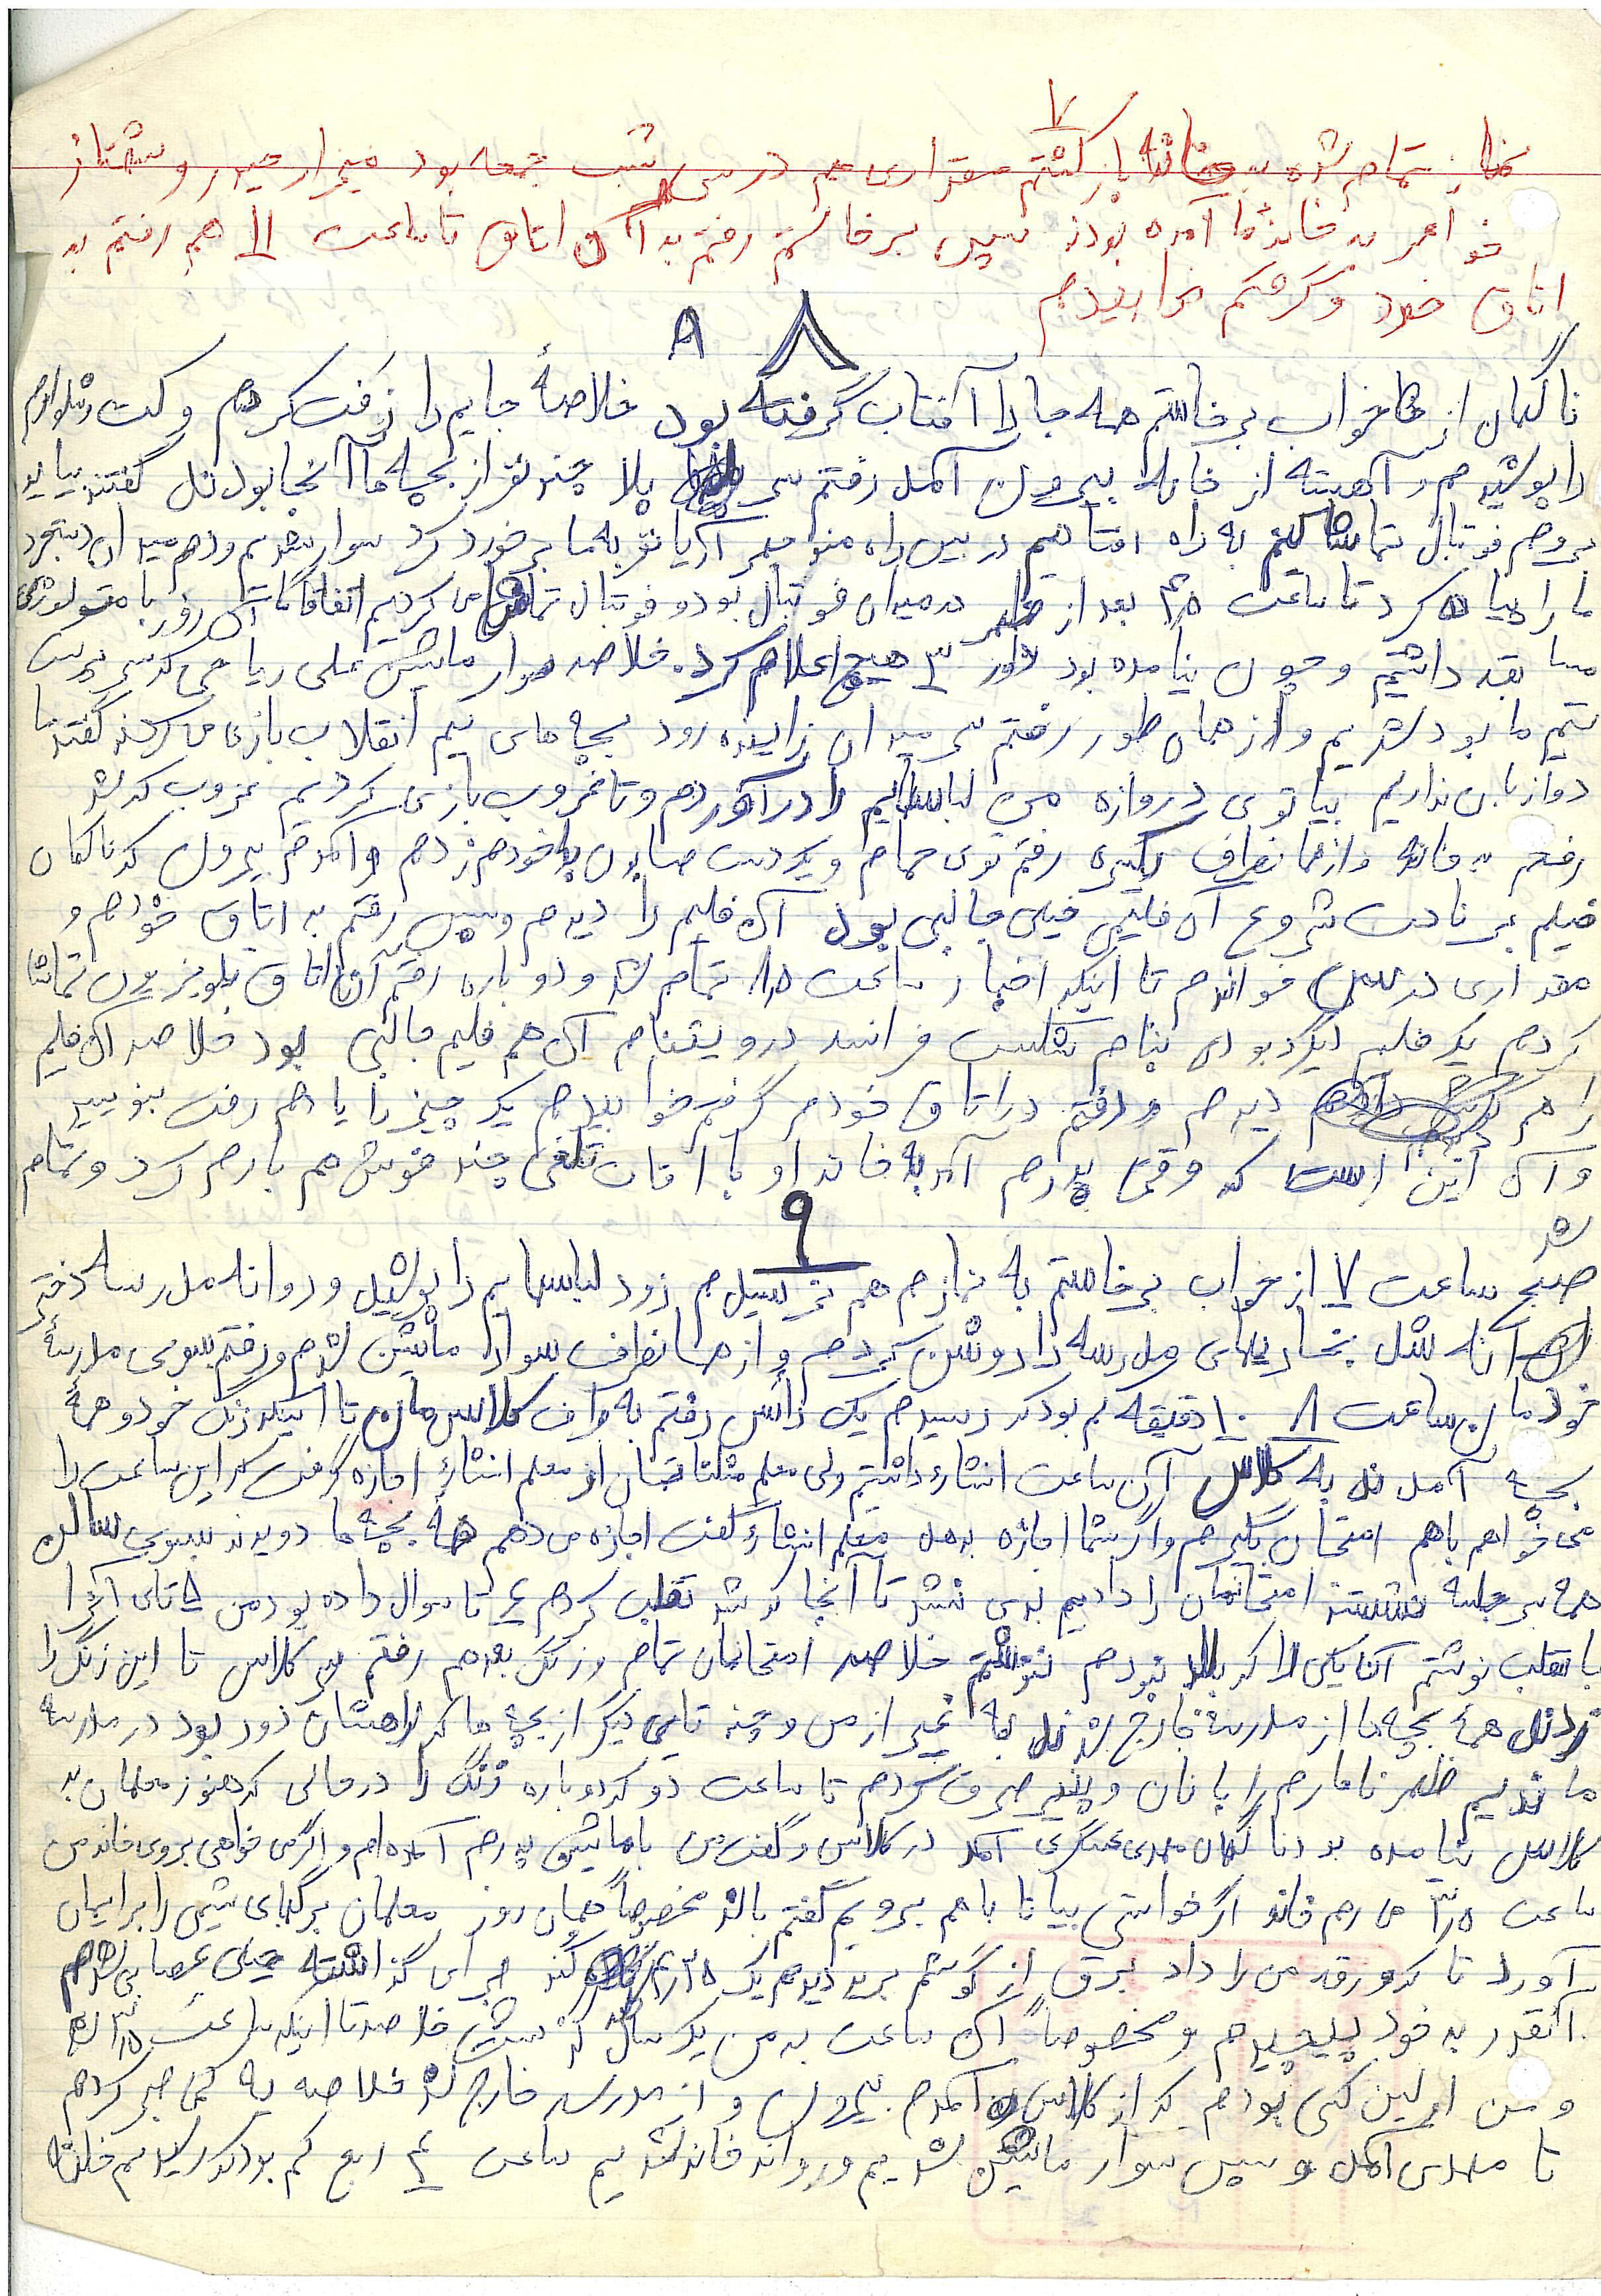 ۷
نماز تمام شد به خانه باز گشتم مقداری هم درس شب جمعه بود و
خواهر به خانه ما آمده بودند سپس برخاستم رفتم به آن اتاق تا ساعت ۱۱ هم رفتم به
اتاق خود و گرفتم خوابیدم
۸ ۸
ناگهان از خواب برخاستم همه جا را آفتاب گرفته بود خلاصهٔ جایم را کردم و کت شلوارم
را پوشیدم و آهسته از خانه بیرون آمد رفتم سر پلا چند نفر از بچه ها آنجا بودند گفتند بیاید
برویم فوتبال تماشا کنیم به راه افتادیم در بین راه منوچهر به ما برخورد کرد سوار شدیم و دم میدان
ما را پیاده کرد تا ساعت بعد از ظهر در میدان فوتبال بود و فوتبال تماشا می کردیم اتفاقا آن روز با
مسابقه داشتیم و چون نیامده بود داور ۳ هیچ اعلام کرد. خلاصه سوار ماشین علی ریاحی که سرپرست
تیم ما بود شدیم و از همان طور رفتم سر میدان زاینده رود بچه های تیم انقلاب بازی می کردند گفتند ما
دروازبان نداریم بیا توی دروازه من لباسهایم را در آوردم و تا غروب بازی کردیم غروب که شد
رفتم به خانه و از همانطرف یکسره رفتم توی حمام و یک دست صابون به خودم زدم و آمدم بیرون که ناگهان
فیلم شروع آن فلیم خیلی جالبی بود آن فلیم را دیدم و سپس رفتم به اتاق خودم و
مقداری درس خواندم تا اینکه اخبار ساعت ۸،۵ تمام شد و دوباره رفتم آن اتاق تلویزیون تماشا
کردم یک فلیم دیگر بود بنام شکست فرانسه در ویتنام آن هم فلیم جالبی بود خلاصه آن فلیم
را هم دیدم و رفتم در اتاق خودم گرفتم خوابیدم یک چیز را یادم رفت بنویسم
و آن این است که وقتی پدرم آمد به خانه او با اوقات تلخی چند فوش هم بارم کرد و تمام
شد
۹
صبح ساعت ۷ از خواب برخاستم به نمازم هم نرسیدم زود لباسهایم را پوشید و روانه مدرسه دختر
انه شد بخاریهای مدرسه را روشن کردم و از همانطرف سوار ماشین شدم و رفتم بسوی مدرسهٔ
خودمان ساعت ۸ ۱۰ دقیقه کم بود که رسیدم یک راس رفتم به طرف کلاس مان تا اینکه زنگ خورد و همهٔ
بچه آمدند به کلاس آن ساعت انشاء داشتیم ولی معلم مثلثاتمان از معلم انشاء اجازه گرفت که این ساعت را
می خواهم باهم امتحان بگیرم و اگر شما اجازه بدهد معلم انشاء گفت اجازه می دهم همهٔ بچه ها دویدند بسوی سالن
همه سر جلسه نشستند امتحانمان را دادیم بدی نشد تا آنجا که شد تقلب کردم ۶ تا سوال داده بود من ۵ تای آنرا
با تقلب نوشتم آن یکی را که بلد نبودم ننوشتم خلاصه امتحانمان تمام و زنگ بعد هم رفتم سر کلاس تا این زنگ را
زدند همهٔ بچه ها از مدرسه خارج شدند به غیر از من و چند تای دیگر از بچه ها که راهشان دور بود در مدرسه
ماندیم ظهر ناهارم را با نان و پنیر صرف کردم تا ساعت دو که دوباره زنگ را در حالی که هنوز معلمان به
کلاس نیامده بود ناگهان مهدی عسگری آمد در کلاس و گفت من با ماشین پدرم آمده ام و اگر می خواهی بروی خانه من
ساعت ۳،۵ می رم خانه اگر خواستی بیا تا باهم برویم گفتم باشد مخصوصاً همان روز معلمان برگهای شیمی را برایمان
آورد تا که ورقه من را داد برق از گوشم پرید دیدم یک برای گذاشته خیلی عصبانی شدم
آنقدر به خود پیچیدم و مخصوصاً آن ساعت به من یک سال گذشت خلاصه تا اینکه ساعت ۳،۵ شد
و من اولین کسی بودم که از کلاس آمدم بیرون و از مدرسه خارج شد خلاصه یه کمی صبر کردم
تا مهدی آمد و سپس سوار ماشین شدیم و روانه خانه شدیم ساعت ۴ ربع کم بود که رسیدیم خانه